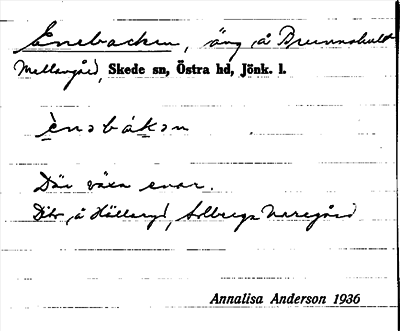 Enebacken, äng å Brunnshult
Mellangård, Skede sn, Östra hd, Jönk. l.
ènəbákən
Där växa enar.
Dito å Hälleryd, Solberga Norregård
Annalisa Anderson 1936